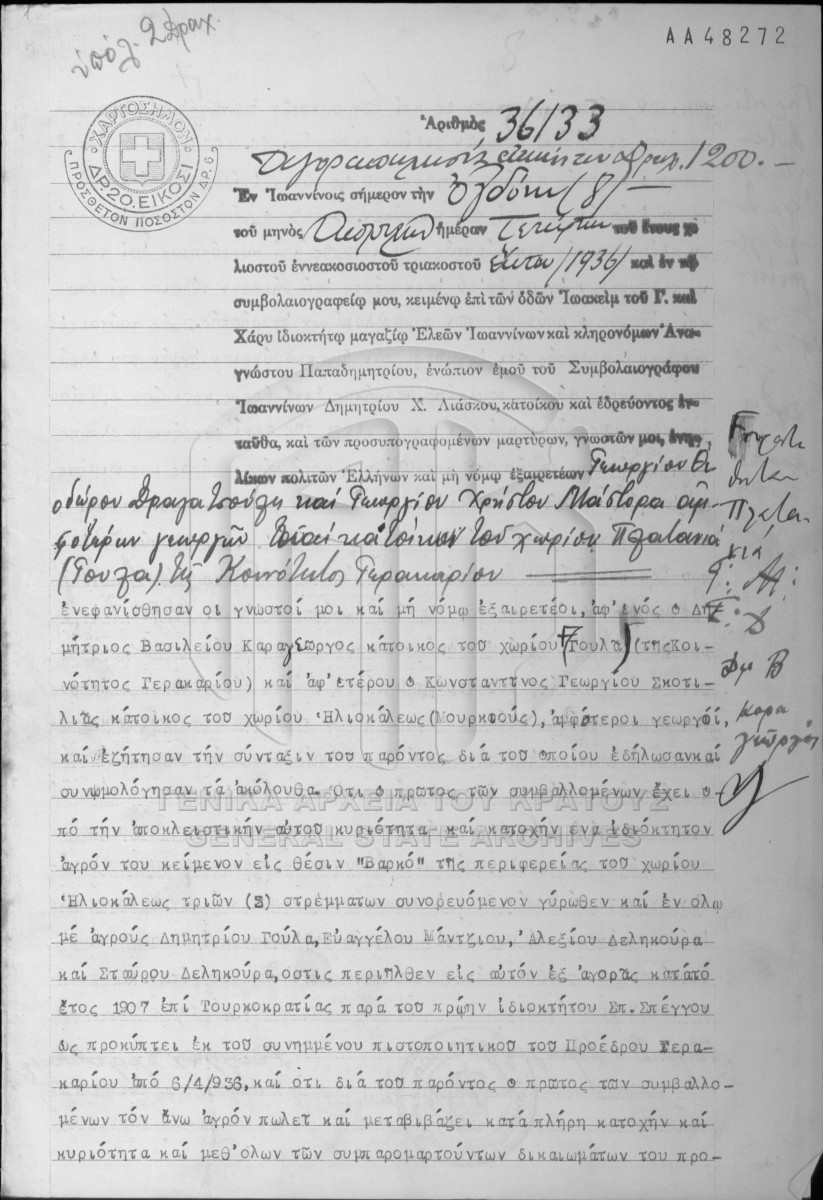 ὑπόλ. 2 Δραχ.
ΑΑ48272
ΧΑΡΤΟΣΗΜΟΝ
ΔΡ. 20. ΕΙΚΟΣΙ
ΠΡΟΣΘΕΤΟΝ ΠΟΣΟΣΤΟΝ ΔΡ. 6
Ἀριθμὸς 36133
ἀκινήτου δραχ. 1200.—
Ἐν Ἰωαννίνοις σήμερον τὴν ὀγδόην (8) —
τοῦ μηνὸς Ἀπριλίου ἡμέραν Τετάρτην τοῦ ἔτους χι
λιοστοῦ ἐννεακοσιοστοῦ τριακοστοῦ ἕκτου (1936) καὶ ἐν τῷ
συμβολαιογραφείῳ μου, κειμένῳ ἐπὶ τῶν ὁδῶν Ἰωακεὶμ τοῦ Γ. καὶ
Χάρυ ἰδιοκτήτῳ μαγαζίῳ Ἐλεῶν Ἰωαννίνων καὶ κληρονόμων Ἀνα-
γνώστου Παπαδημητρίου, ἐνώπιον ἐμοῦ τοῦ Συμβολαιογράφου
Ἰωαννίνων Δημητρίου Χ. Λιάσκου, κατοίκου καὶ ἑδρεύοντος ἐν-
ταῦθα, καὶ τῶν προσυπογραφομένων μαρτύρων, γνωστῶν μοι, ἐνη-
λίκων πολιτῶν Ἑλλήνων καὶ μὴ νόμῳ ἐξαιρετέων Γεωργίου Θε
οδώρου Δραγατσούλη καὶ Γεωργίου Χρήστου Μάστορα ἀμ
φοτέρων γεωργῶν καὶ κατοίκων τοῦ χωρίου Πλατανιά
(Γούλα) τῆς Κοινότητος Γερακαρίου
ἐνεφανίσθησαν οι γνωστοί μοι καί μή νόμω ἐξαιρετέοι, ἀφ'ἑνός ο Δη
μήτριος Βασιλείου Καραγεώργος κάτοικος τοῦ χωρίου Γούλα (τῆς Κοι-
νότητος Γερακαρίου) καί ἀφ'ετέρου ο Κωνσταντῖνος Γεωργίου Σκοτι-
λιᾶς κάτοικος τοῦ χωρίου Ἡλιοκάλεως (Μουρκιούς), ἀμφότεροι γεωργοί,
καί ἐζήτησαν τήν σύνταξιν τοῦ παρόντος διά τοῦ ὁποίου ἐδήλωσαν καί
συνωμολόγησαν τά ἀκόλουθα. Ὅτι ο πρῶτος τῶν συμβαλλομένων ἔχει υ-
πό τήν ἀποκλειστικήν αὐτοῦ κυριότητα καί κατοχήν ἕνα ἰδιόκτητον
ἀγρόν του κείμενον εἰς θέσιν "Βαρκό" τῆς περιφερείας τοῦ χωρίου
Ἡλιοκάλεως τριῶν (3) στρεμμάτων συνορευόμενον γύρωθεν καί ἐν ὅλῳ
μέ ἀγρούς Δημητρίου Γούλα, Εὐαγγέλου Μάντζιου, Ἀλεξίου Δεληκούρα
καί Σταύρου Δεληκούρα, ὅστις περιῆλθεν εἰς αὐτόν ἐξ ἀγορᾶς κατά τό
ἔτος 1907 ἐπί Τουρκοκρατίας παρά τοῦ πρώην ἰδιοκτήτου Σπ. Σπέγγου
ὡς προκύπτει ἐκ τοῦ συνημμένου πιστοποιητικοῦ τοῦ Προέδρου Γερα-
καρίου ἀπό 6/4/936, καί ὅτι διά τοῦ παρόντος ο πρῶτος τῶν συμβαλλο-
μένων τόν ἄνω ἀγρόν πωλεῖ καί μεταβιβάζει κατά πλήρη κατοχήν καί
κυριότητα καί μεθ'ὅλων τῶν συμπαρομαρτούντων δικαιωμάτων του προ-
Πλατα-
νιά
Γ. Μ.
Γ. Δ
Δημ Β
Καρα
γεῶργος
ΓΕΝΙΚΑ ΑΡΧΕΙΑ ΤΟΥ ΚΡΑΤΟΥΣ
GENERAL STATE ARCHIVES